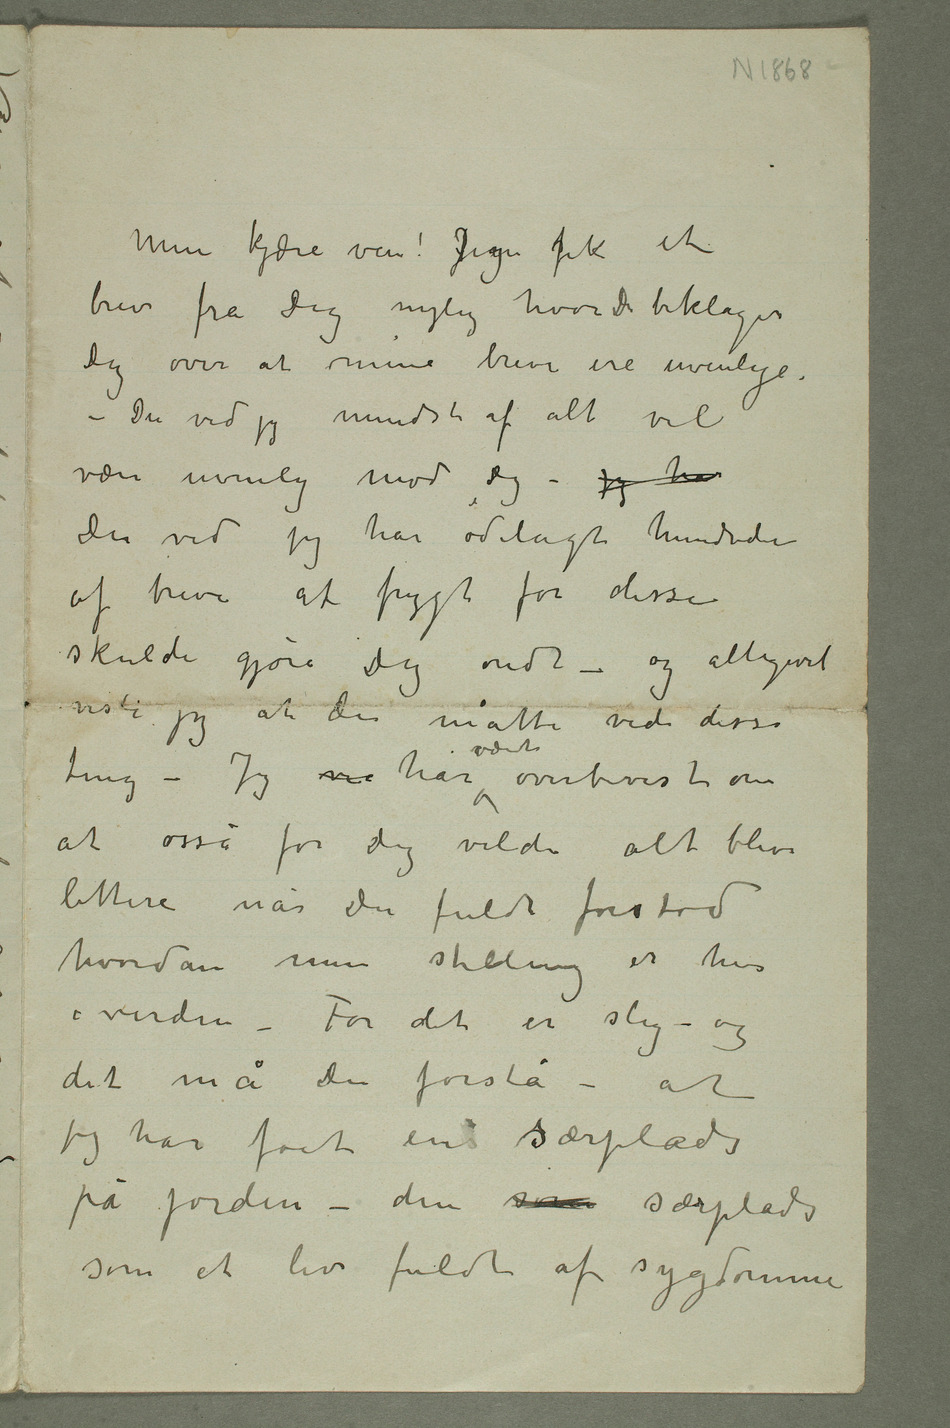 N 1868
Min kjære ven! Jeg fik et
brev fra Dig nylig hvor Du beklager
Dig over at mine breve ere uvenlige.
– Du ved jeg mindst af alt vil
være uvenlig mod Dig – jeg har
Du ved jeg har ødelagt hundreder
af breve af frygt for disse
skulde gjøre Dig ondt – og alligevel
viste jeg at Du måtte vide disse
ting – Jeg har været overbevist om
at også for Dig vilde alt blive
lettere når Du fuldt forstod
hvordan min stilling er her
i verden – For det er slig – og
det må Du forstå – at
jeg har fået en særplads
på jorden – den som særplads
som et liv fuldt af sygdomme